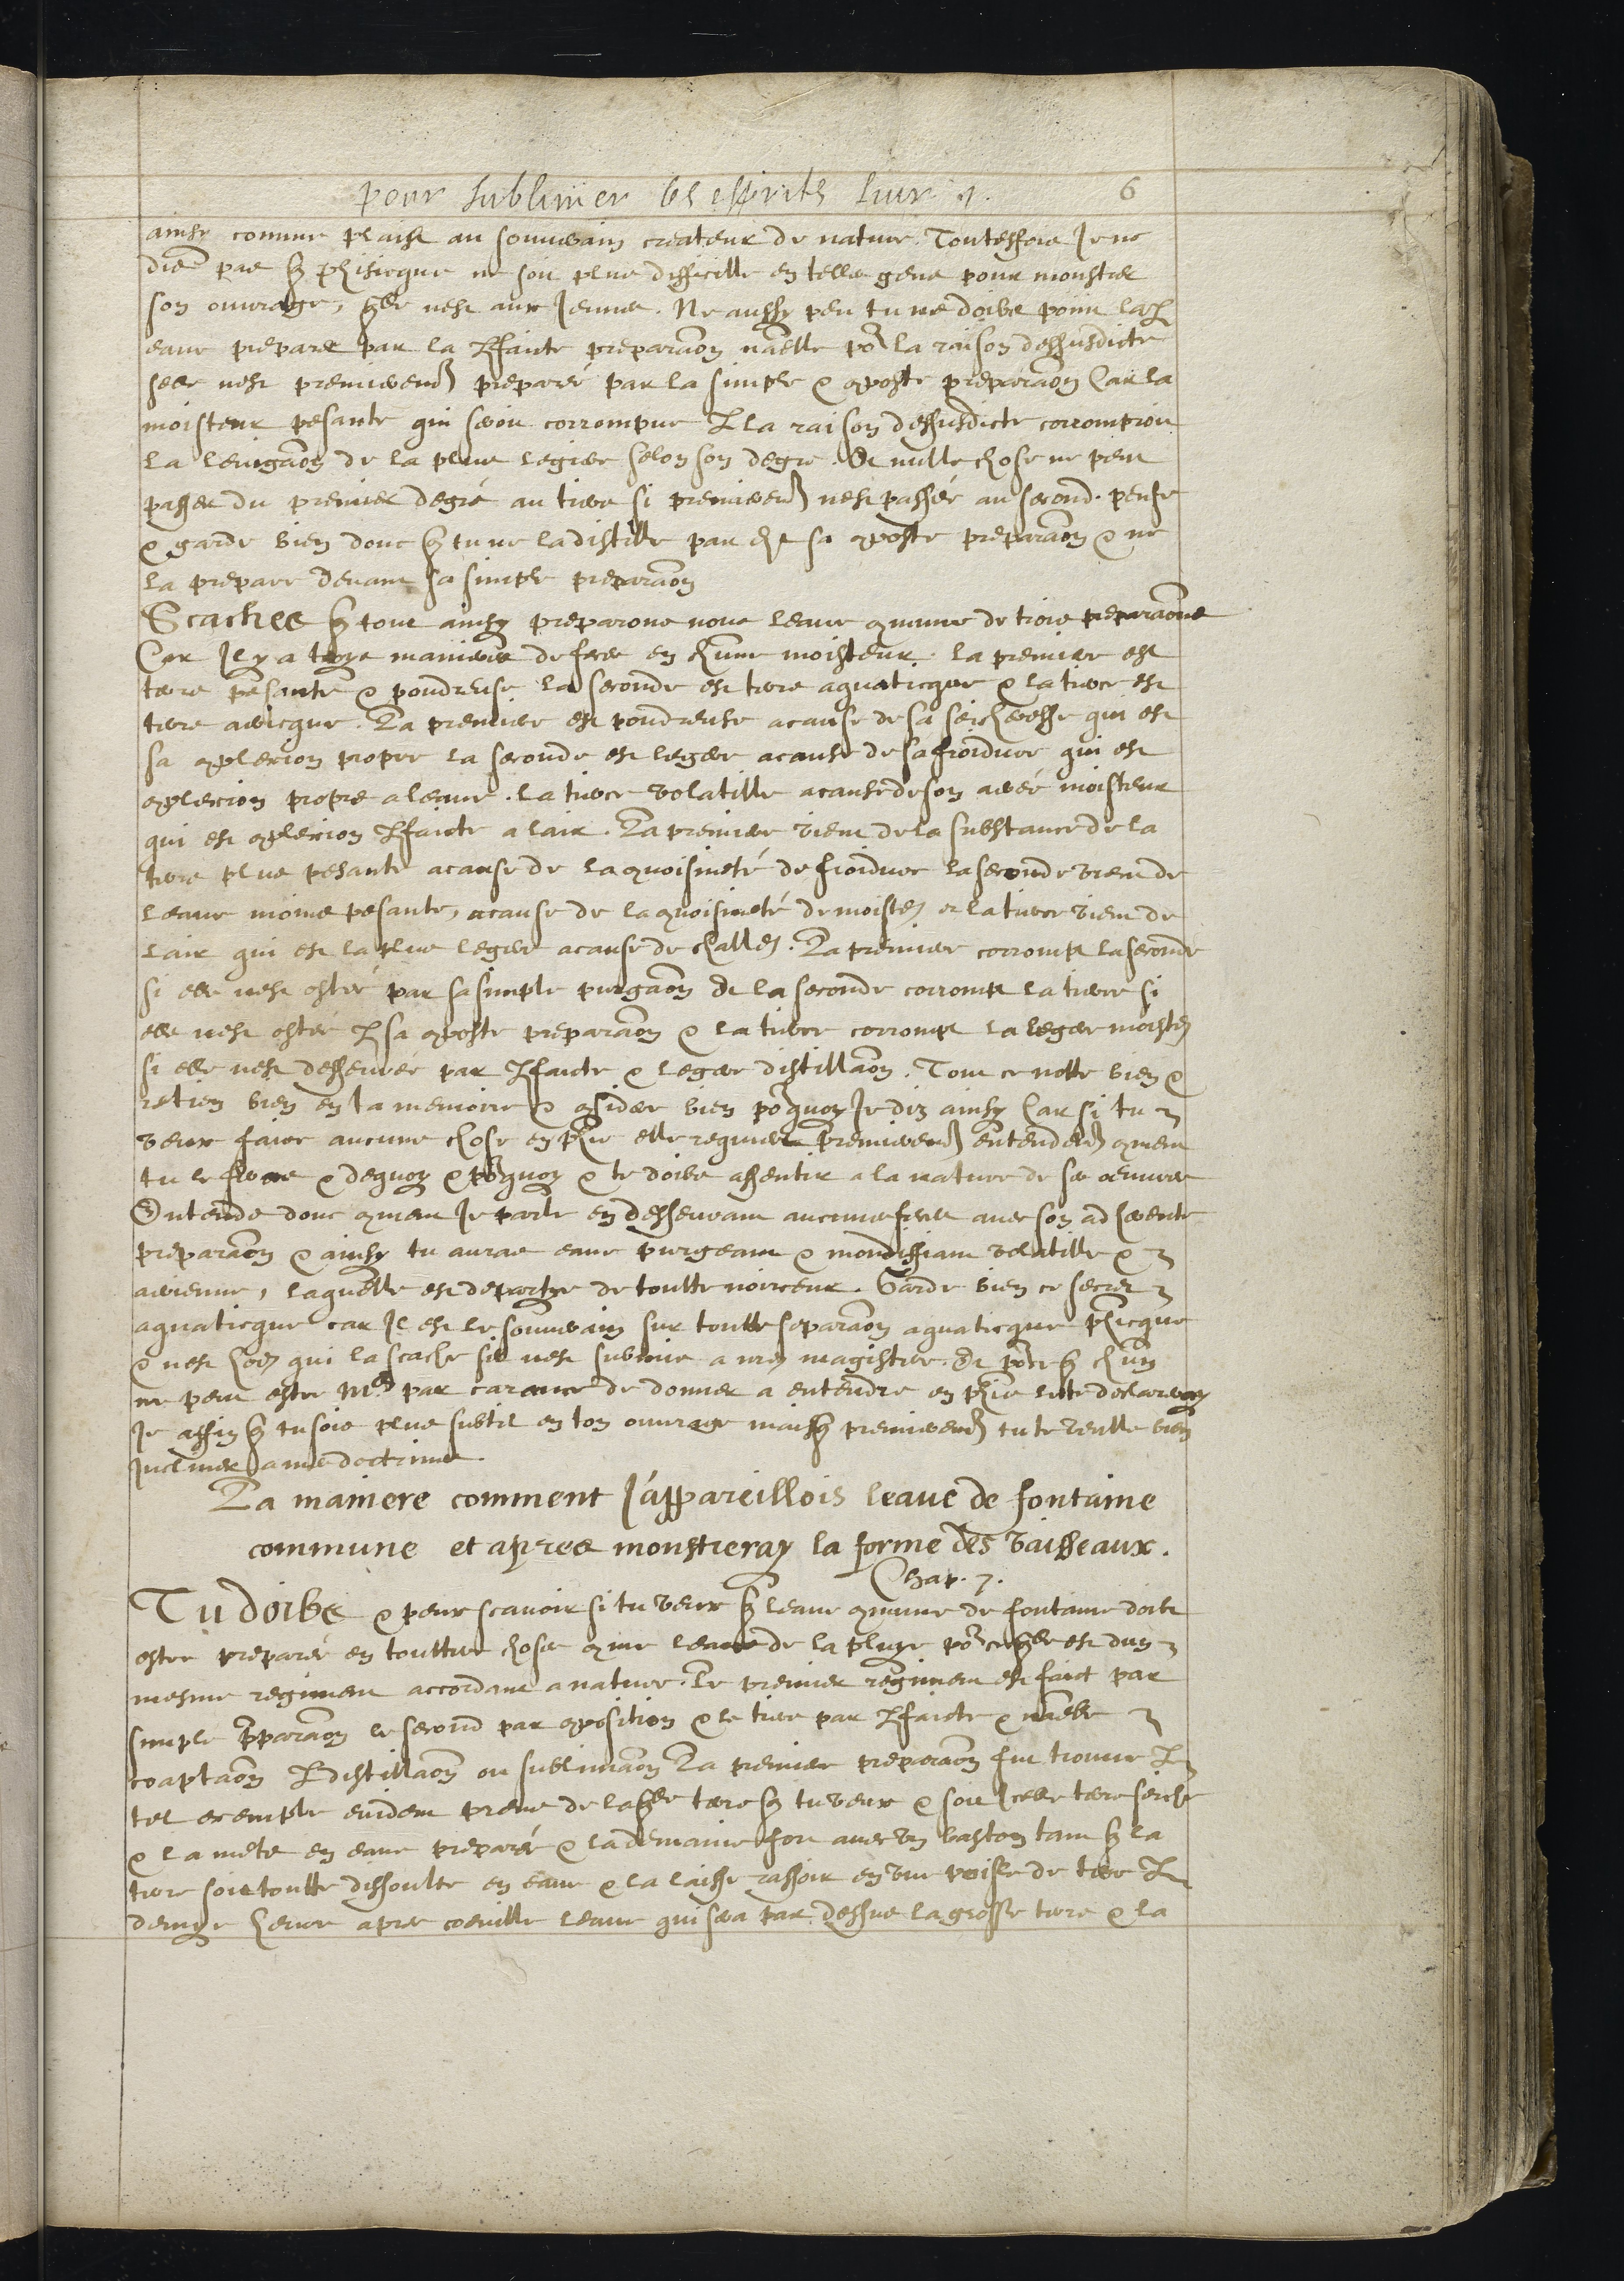 pour sublimer les esprits livr. 1. 6
ainsy comme plaist au souverain createur de nature. Touteffois Je ne
dis pas q phisicque ne soit plus difficille en telles gens pour monstrer
son ouvrage, qlle nest aux Jeunes. Ne aussy peu tu ne doibs point
eaue preparer par la pfaicte preparaon nãelle po la raison dessusdicte
selle nest premieremt preparé par la simple & 9poste preparaon Car la
moisteur pesante qui seroit corrompue p la raison dessusdicte corromproit
la levigaon de la plus legiere selon son degre. Et nulle chose ne peut
passer du premier degré au tiers si premieremt nest passé au second. pense
& garde bien donc q tu ne la distille par sa 9poste preparaon & ne
la prepare devant sa simple preparaon
Scaches q tout ainsy preparons nous leaue 9mune de trois preparaons
Car Jl y a troys manieres de feces en chune moisteur. la premiere est
terre pesante & poudreuse la seconde est terre aquaticque & la tierce est
terre aericque. La premiere est poudreuse a cause de sa seicheresse qui est
sa 9plexion propre la seconde est legere a cause de sa froidure qui est
9plexion propre a leaue. la tierce volatille a cause de son aeré moisteur
qui est 9plexion pfaicte a lair. La premiere vient de la substance de la
terre plus pesante a cause de la 9voisineté de froidure la seconde vient de
leaue moins pesante, a cause de la 9voisineté de moister et la tierce vient de
lair qui est la plus legere a cause de challer. La premiere corrompt la seconde
si elle nest ostée par sa simple purgaon Et la seconde corrompt la tierce si
elle nest ostée p sa 9poste preparaon & la tierce corrompt la legere moister
si elle nest desseurée par pfaicte & legere distillaon. Tout ce notte bien &
retien bien en ta memoire & 9sidere bien poquoy Je dis ainsy Car si tu
veux faire aucune chose en phie elle requiert premieremt entendemt 9ment
tu le feras & dequoy & poquoy & te doibs assentir a la nature de ses oeuvres
Entends donc 9ment Je parle en desseurant aucunes feces avec son adherente
preparaon & ainsy tu auras eaue purgeant & mondiffiant volatille &
aerienne, laquelle est departye de toutte noirceur. Garde bien ce secret
aquaticque car Jl est le souverain sur toutte separaon aquaticque phicque
& nest hoe qui la scache sil nest submis a nre magistere. Et poce q chun
ne peut estre Mr par carence de donner a entendre en phie
Je affin q tu sois plus subtil en ton ouvrage mais q premieremt tu te veulle bien
Jncliner a mes doctrines.
La maniere comment J'appareillois leaue de fontaine
commune et apres monstreray la forme des vaisseaux.
Chap. 7.
Tu doibs & peux scavoir si tu veux q leaue 9mune de fontaine doibt
estre preparé en touttes choses 9me leaue de la pluye po ce qlle est dun
mesme regiment accordant a nature. Le premier regiment est faict par
simple pparaon le second par 9position & le tiers par pfaicte & nãelle
coaptaon p distillaon ou sublimaon La premiere preparaon fut trouvée p
tel exemple evident prens de laqlle terre q tu veux & soit Jcelle terre seiche
& la mets en eaue preparé & la demaine fort avec un baston tant q la
terre soit toutte dissoulte en eaue & la laisse rassoir en une de terre p
demye heure apres coeuille leaue qui sera par dessus la grosse terre & la